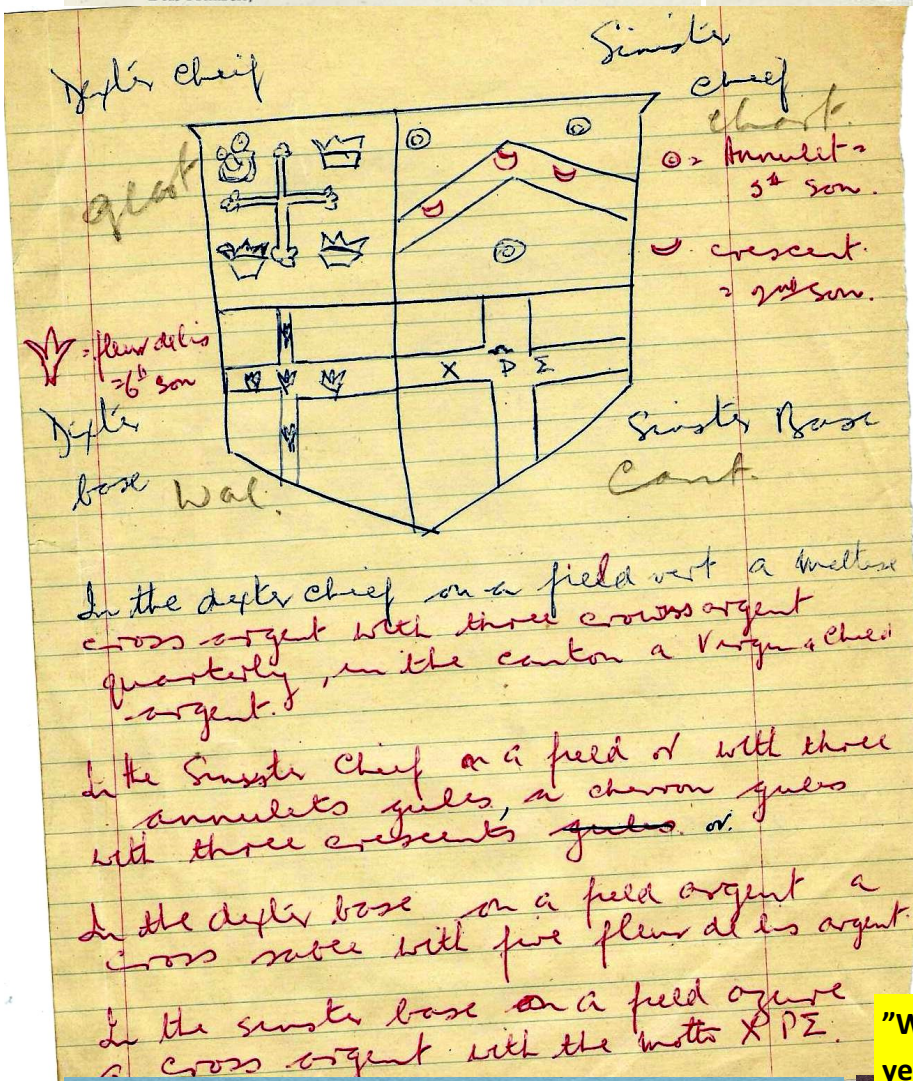 Dexter Cheif
Sinister
Cheif
Chart.
Glast
⊚ = Annulet =
5th son.
crescent
= 2nd son.
= fleur de lis
= 6th son
X P Σ
Dexter
base
Wal.
Sinister Base
Cant.
In the dexter cheif on a field vert a maltese
cross argent with three crowns argent
quarterly, in the canton a Virgin & Child
argent.
In the Sinsster Cheif on a field or with three
annulets gules, a chevron gules
with three crescents gules or.
In the dexter base on a field argent a
cross sable with five fleur de lis argent.
In the sinster base on a field azure
a cross argent with the motto X P Σ.
"W
ve